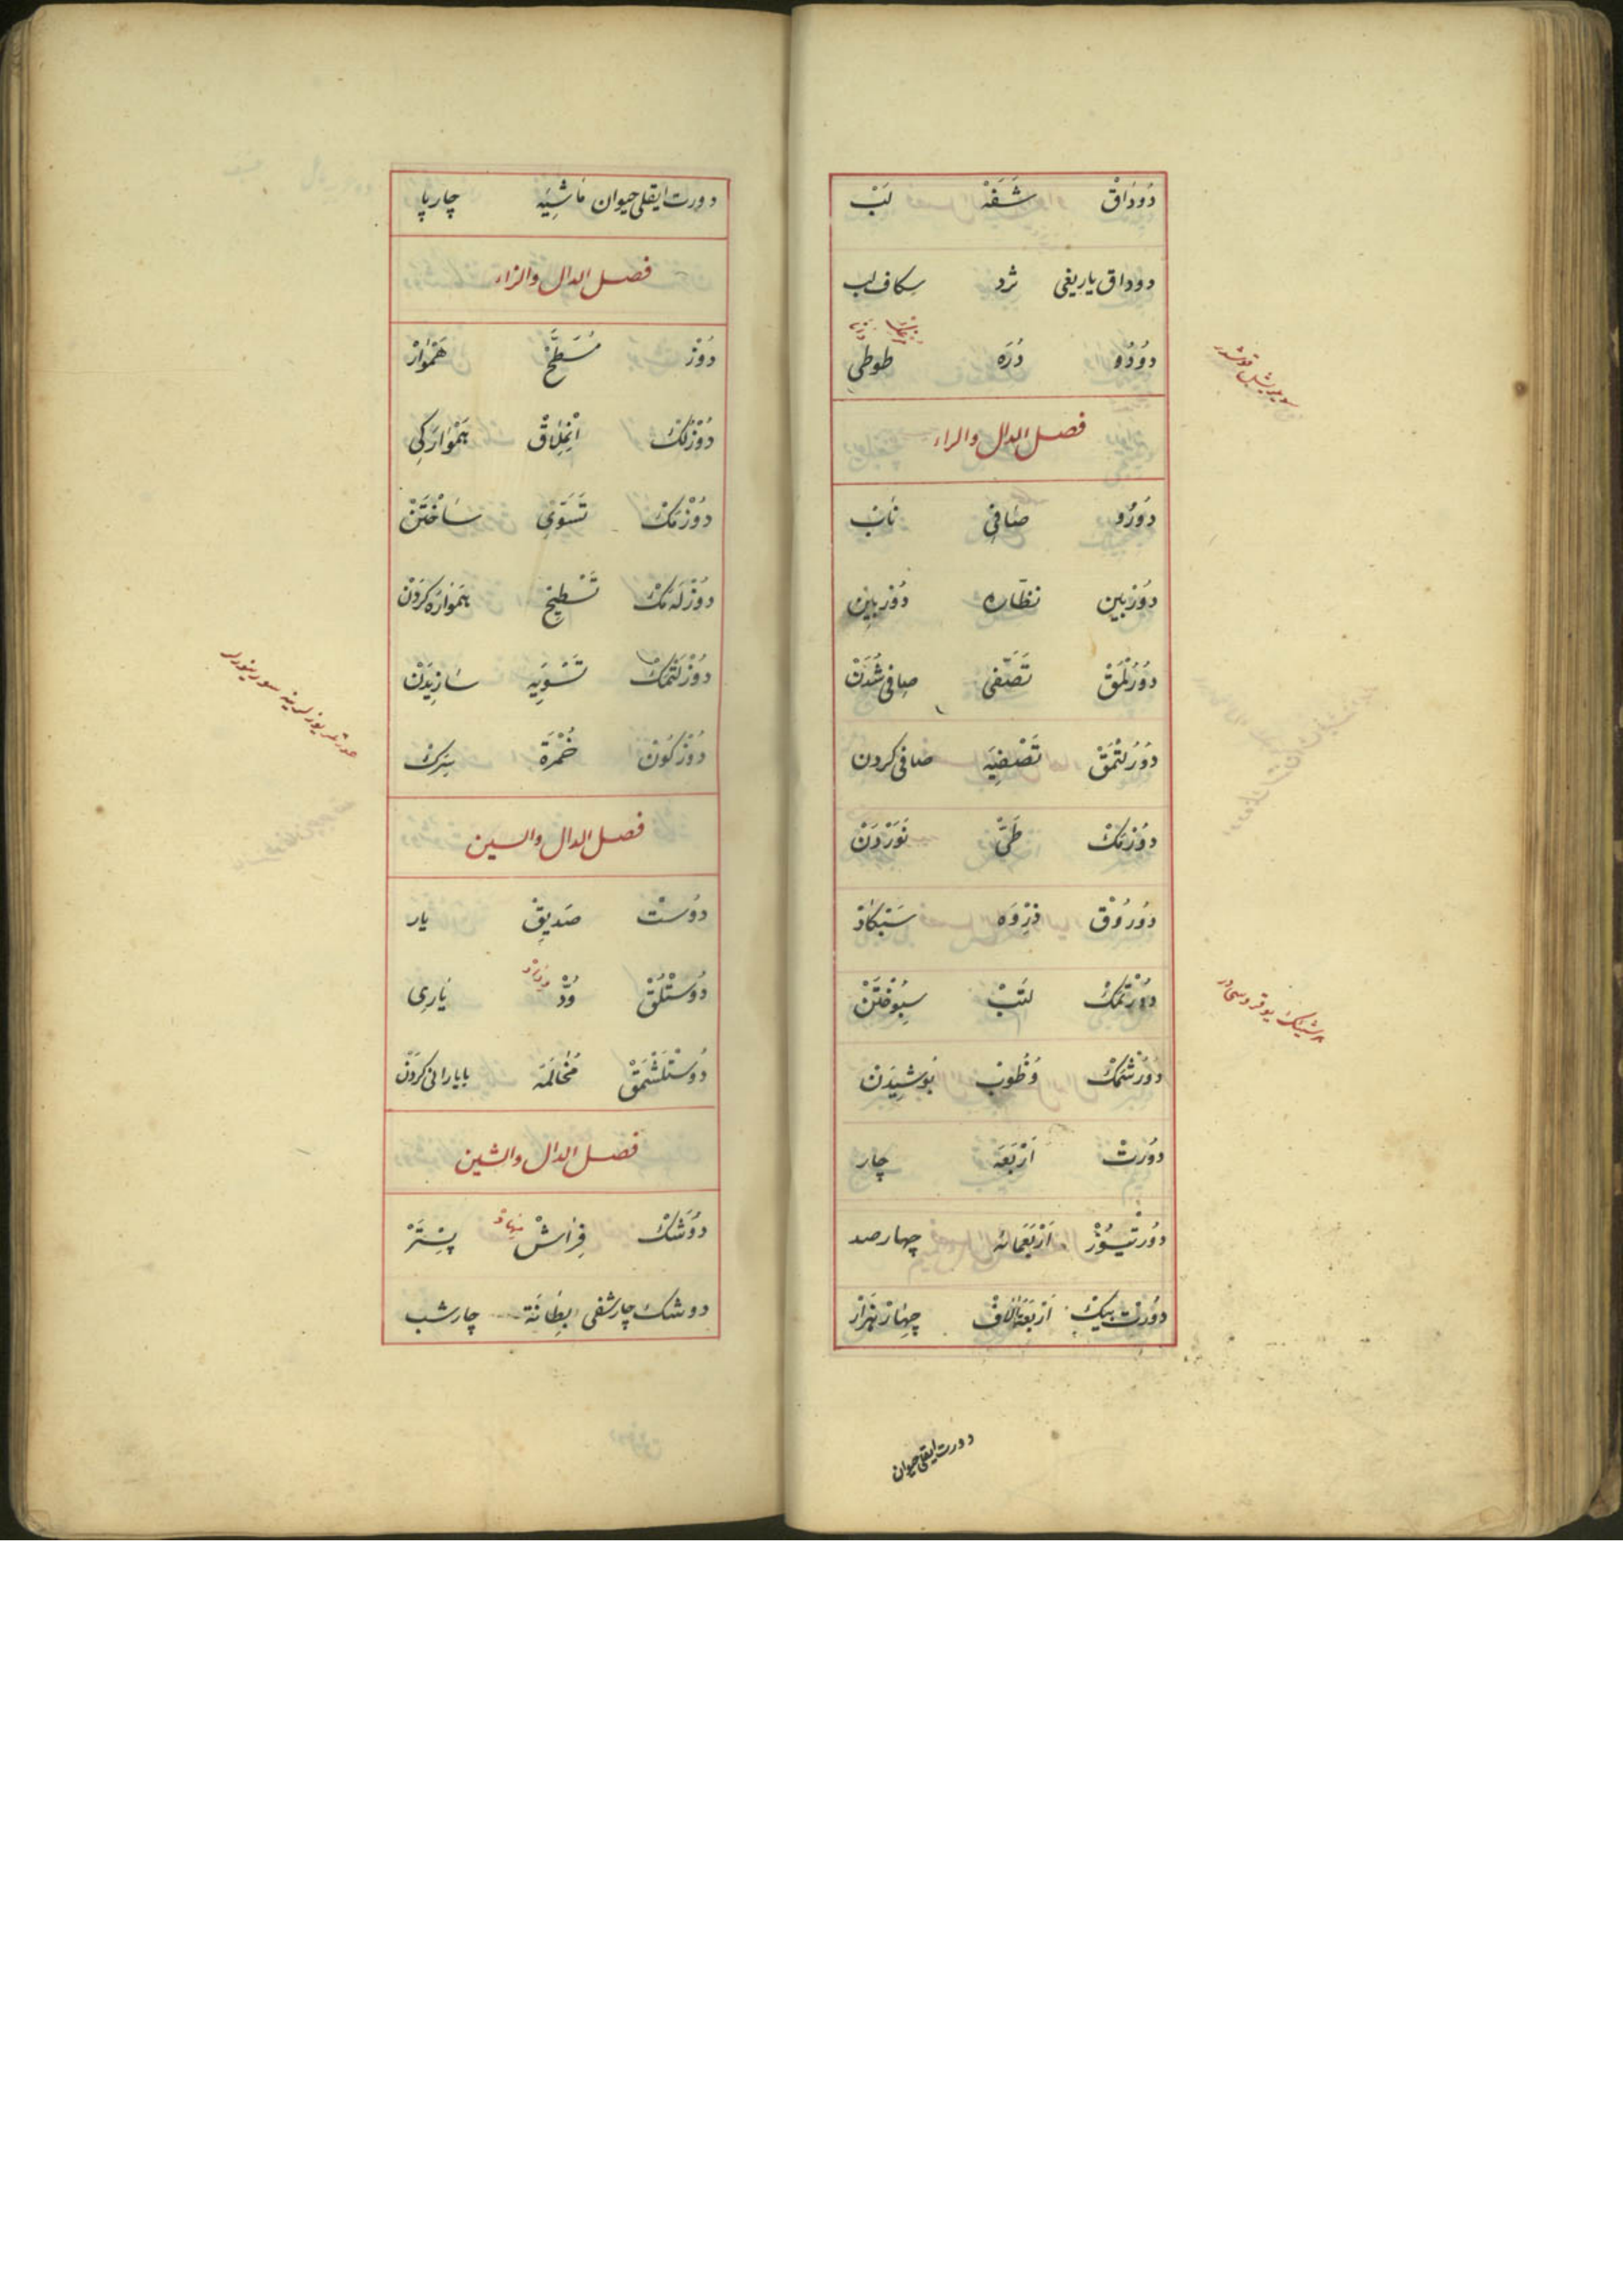 دُودَاقْ شَفَهْ لَبْ
دوداق ياريغى ثرد شكاف لب
دُودُو دُرَه طوطى
سويلر يشل قوشدر
فصل الدال والراء
دُورُو صَافِى نَابْ
دُورْبِين نظاره دُورْبِين
دُورُلْمَقْ تَصَفِّى صافى شُدَنْ
دُورُلْتْمَقْ تَصْفِيَه صافى كردن
دُورْمَكْ طَىّْ نَوَرْدَنْ
دُورُوقْ ذِرْوَه
دُورْتْمَكْ لَتَبْ سِپُوخْتَنْ
دُورُشْمَكْ وُظُوبْ
دُورْتْ اَرْبَعَه چار
دُورْتْيُوزْ اَرْبَعَمِائه چهارصد
دُورْت بيكْ اَرْبَعَةُ اٰلَافْ چِهَارْ هَزَارْ
دورت ايقلى حيوان
دورت ايقلى حيوان مَاشِيَه چارپا
فصل الدال والزاء
دُوزْ مُسَطَّحْ هَمْوَارْ
دُوزْلُكْ اِنْمِلَاقْ هَمْوَارَكِى
دُوزْمَكْ تَسَوِّى سَاخْتَنْ
دُوزْلَه‌مَكْ تَسْطِيحْ هَمْوَارَه كَرْدَنْ
دُوزَلْتْمَكْ تَسْوِيَه سَازِيدَنْ
دُوزْكُونْ خُمْرَة سِرَكْ
فصل الدال والسين
دُوسْتْ صَدِيقْ يار
دُوسْتْلُقْ وُدّْ وِدَادْ يَارِى
دُوسْتْلَشْمَقْ مُخَالَمَه
فصل الدال والشين
دُوشَكْ فِرَاشْ مِهَادْ بِسْتَرْ
دوشك چارشفى بِطَانَة چارشب